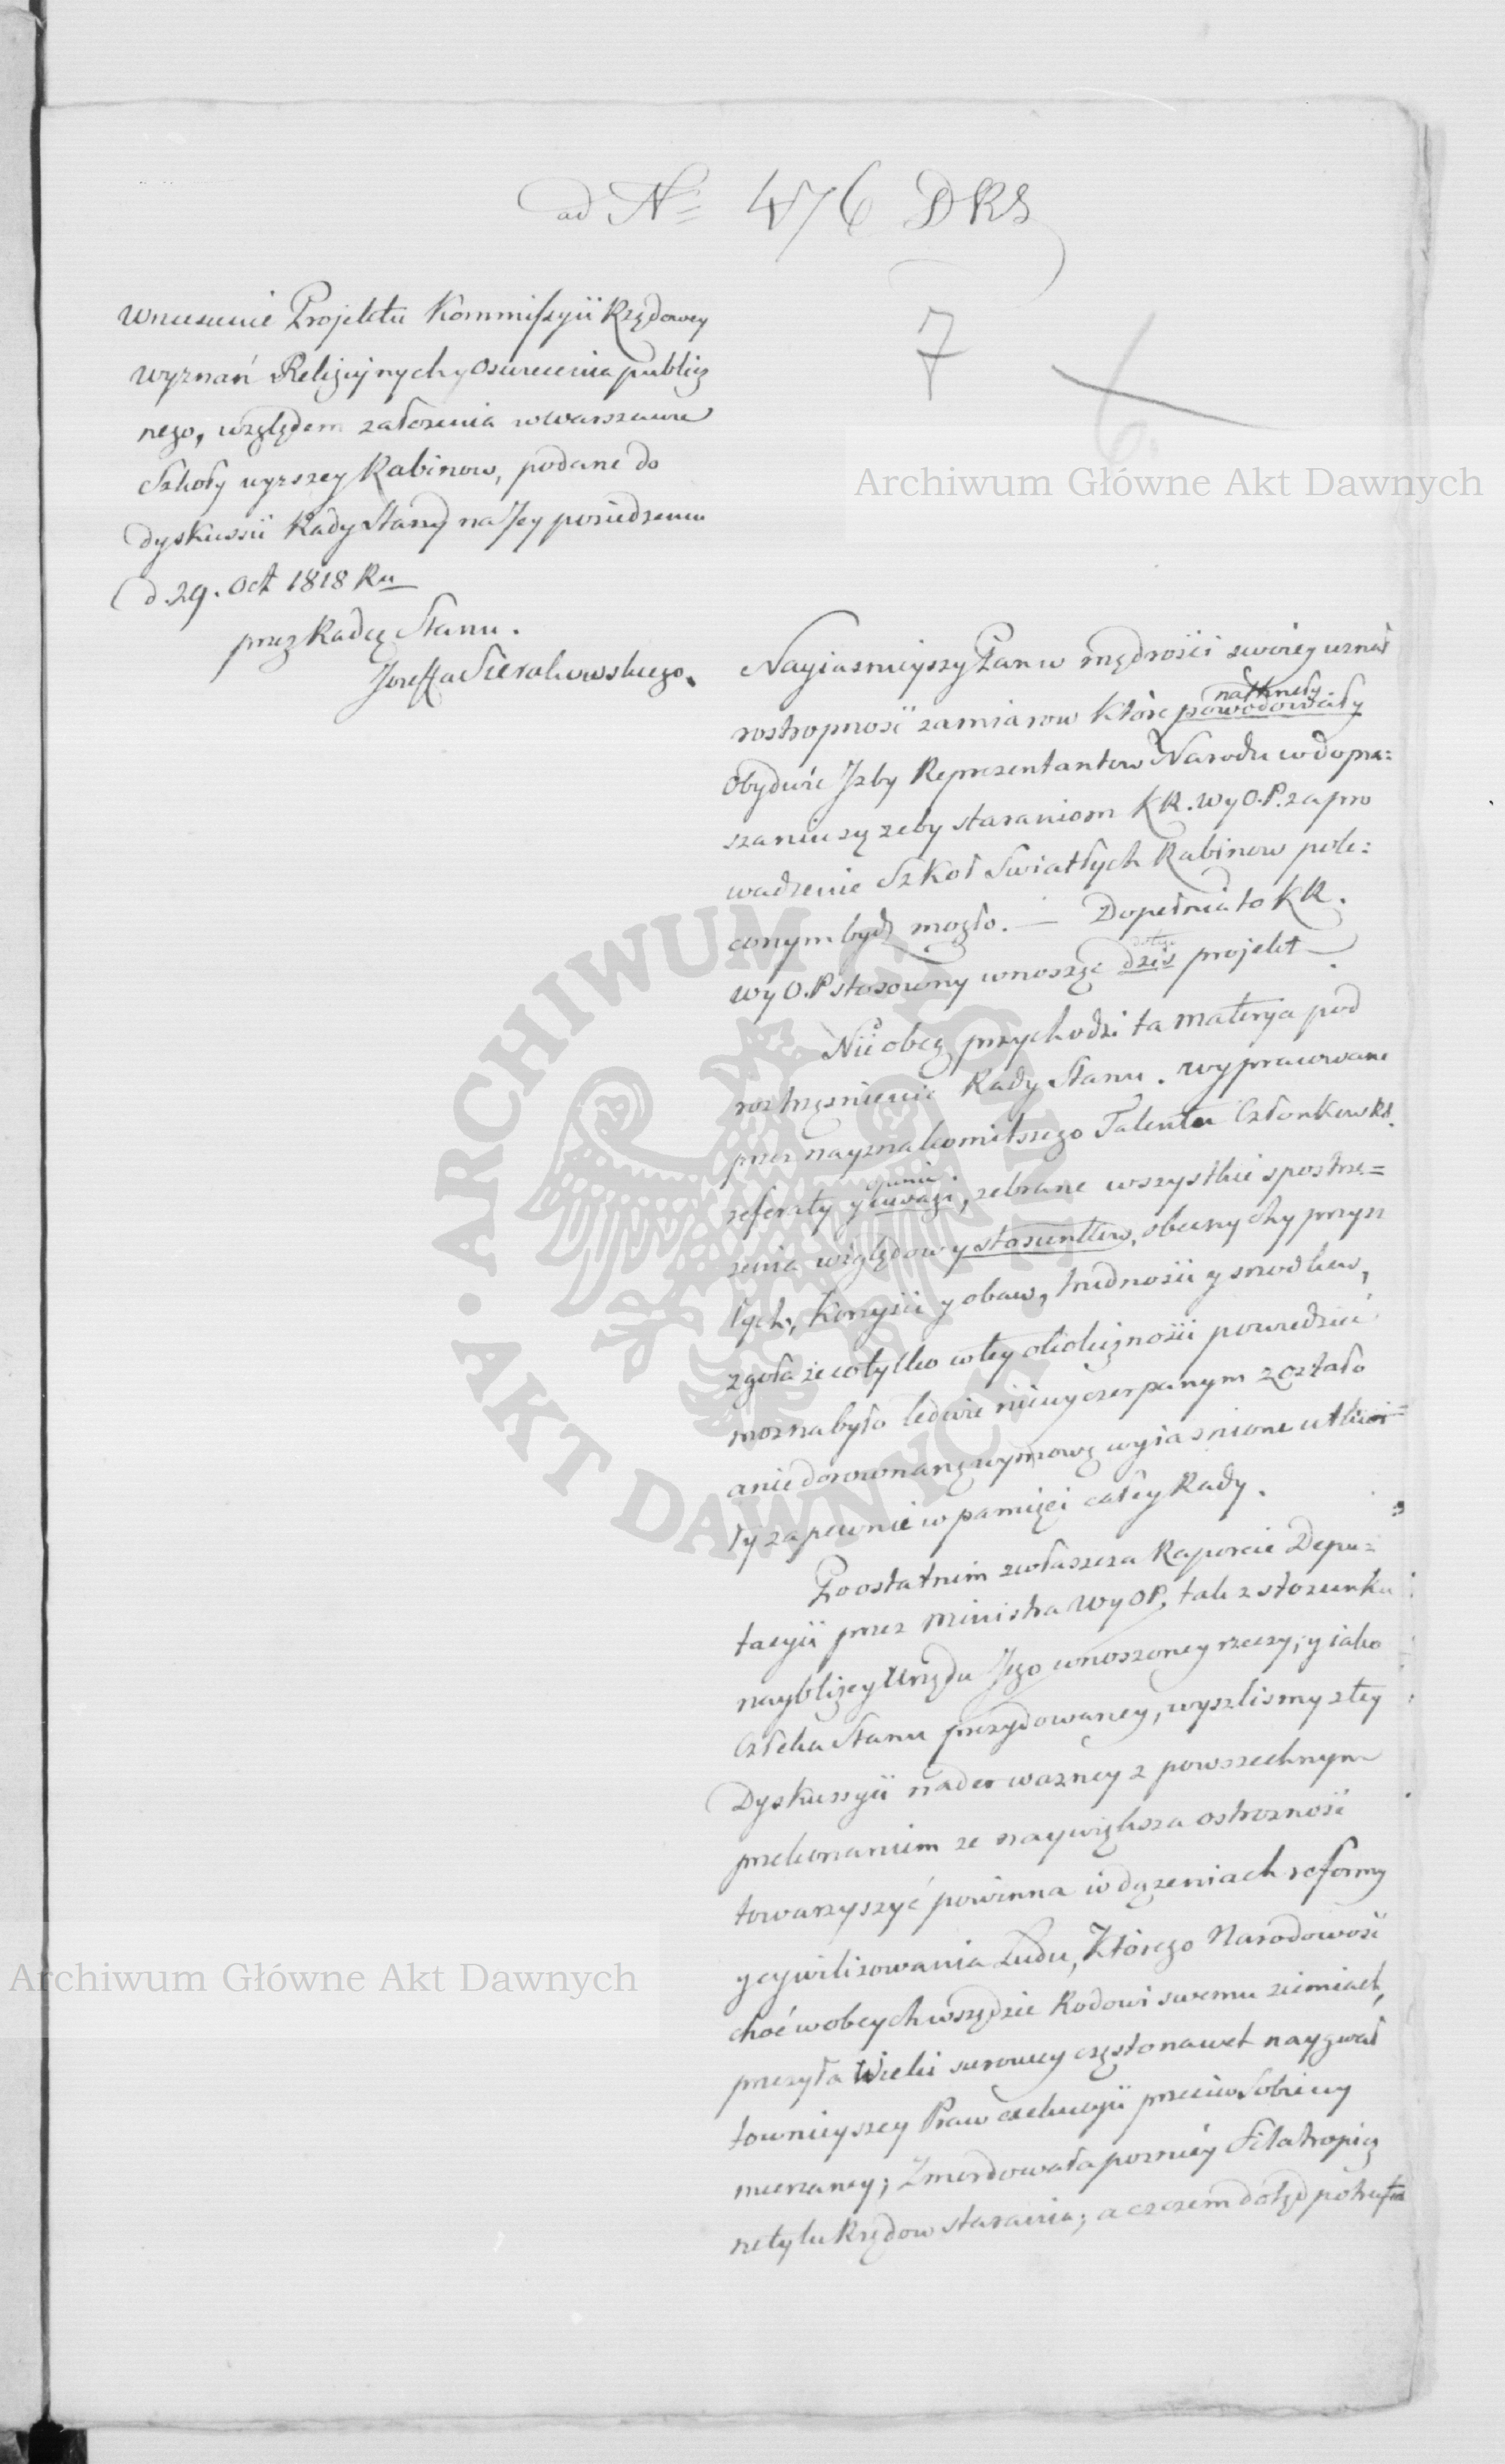 ad No 476 DRS
7
6.
Wniesienie Projektu Kommissyii Rządowey
Wyznań Religiynych y Oswiecenia publicz
nego, względem założenia w Warszawie
Szkoły wyzszey Rabinow, podane do
dyskussii Rady Stanu na Jey posiedzeniu
d. 29. Oct 1818 Ru
przez Radcę Stanu.
Józeffa Sierakowskiego.
Nayiasnieyszy Pan w mądrości swoiey uznał
natknęły
rostropność zamiarow które powodowały
Obydwie Jzby Reprezentantow Narodu w dopra=
szaniu się zeby staraniom K R. W y O. P. zapro
wadzenie Szkoł Swiatłych Rabinow pole=
conym bydz mogło. — Dopełnia to K R.
W y O. P stosowny wnosząc dzis projekt —
Nie obcą przychodzi ta materya pod
roztrząsnienie Rady Stanu. wypracowane
przez nayznakomitszego Talentu Członkow RS.
opinie
referaty y uwagi, zebrane wszystkie spostrze=
zenia względow y stosunkow, obecnych y przysz
łych, korzyści y obaw, trudności y srodkow,
zgoła że co tylko w tey okoliczności powiedzieć
mozna było ledwie niewyczerpanym zostało
a niedorownaną wymową wyiasnione utkwi=
ły zapewnie w pamięci całey Rady.
Po ostatnim zwłaszcza Raporcie Depu=
tacyii przez Ministra W y O P, tak z stosunku
naybliżey Urzędu Jego wnoszoney rzeczy, y iako
Człeka Stanu prezydowaney, wyszlismy z tey
Dyskussyii nader wazney z powszechnym
przekonaniem ze naywiększa ostrozność
towarzyszyć powinna w dązeniach reformy
y cywilizowania Ludu, Którego Narodowość
choć w obcych wszędzie Rodowi swemu ziemiach,
przezyła Wieki surowey często nawet naygwał
townieyszey Praw exekucyii przeciw sobie wy
mierzaney; Zmordowała pozniey Filatropicz
ne tylu Rządow starania; a czczem dotąd